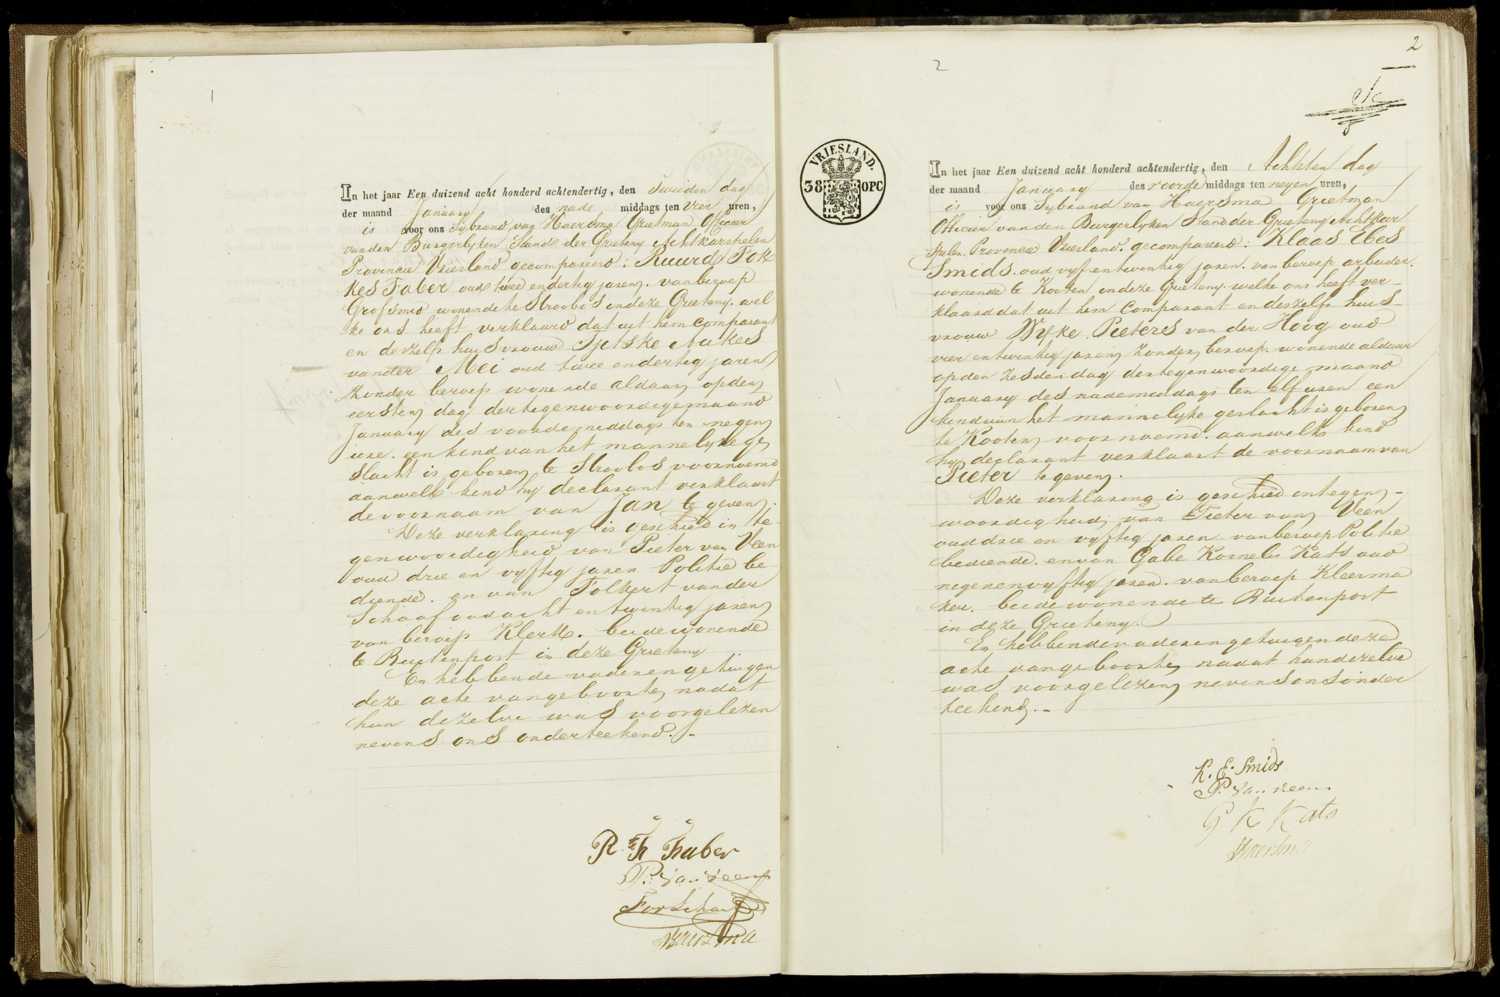 1
In het jaar Een duizend acht honderd achtendertig, den Tweeden dag
der maand January des nade middags ten vier uren,
is voor ons Sybrand van Haersma Grietman Officier
vanden Burgerlyken Stand der Grieteny Achtkarspelen
Provincie Vriesland gecompareerd: Ruurd Fok
kes Faber oud twee endertig jaren, van beroep
Grofsmid wonende te Stroobos in deze Grieteny, wel
ke ons heeft verklaard dat uit hem Comparant
en deszelfs huisvrouw Tjitske Aukes
vander Mei oud twee endertig jaren,
zonder beroep wonende aldaar, op den
eersten dag der tegenwoordige maand
January des voordemiddags ten negen
ure een kind van het mannelyke ge
slacht is geboren, te Stroobos voornoemd
aan welk kind hy declarant verklaart
de voornaam van Jan te geven.
Deze verklaring is geschied in te
genwoordigheid van Pieter van Veen
oud drie en vyftig jaren Politie be
diende en van Folkert vander
Schaaf oud acht en twintig jaren,
van beroep Klerk, beide wonende
te Buitenpost in deze Grieteny
En hebbende vader en getuigen
deze acte van geboorte, nadat
hun dezelve was voorgelezen
nevens ons onderteekend.-
R F Faber
P. van Veen
F v d Schaaf
Haersma
2
2
VRIESLAND.
38 OPC
In het jaar Een duizend acht honderd achtendertig, den Achtsten dag
der maand January des voorde middags ten negen uren,
is voor ons Sybrand van Haersma Grietman
Officier vanden Burgerlyken Stand der Grieteny Achtkar
spelen Provincie Vriesland gecompareerd: Klaas Ebes
Smids oud vyf entwintig jaren van beroep arbeider.
wonende te Kooten in deze Grieteny welke ons heeft ver-
klaard dat uit hem Comparant en deszelfs huis-
vrouw Wyke Pieters van der Hoog oud
vier entwintig jaren, zonder beroep wonende aldaar
op den zesden dag der tegenwoordige maand
January des nademiddags ten elf uren een
kind van het mannelyke geslacht is geboren,
te Kooten, voornoemd aan welk kind
hy declarant verklaart de voornaam van
Pieter te geven.
Deze verklaring is geschied in tegen-
woordigheid, van Pieter van Veen
oud drie en vyftig jaren van beroep Politie
bediende en van Gabe Kornelis Kats oud
negen en vyftig jaren van beroep Kleerma
ker beide wonende te Buitenpost
in deze Grieteny.
En hebbende vader en getuigen deze
acte van geboorte, nadat hun dezelve
was voorgelezen, nevens ons onder
teekend.-
K. E. Smids
P. van Veen
G K Kats
Haersma